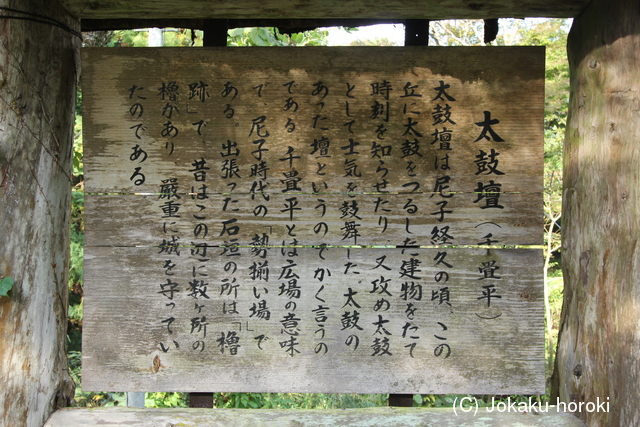 太鼓壇（千畳平）
太鼓壇は尼子経久の頃、この
丘に太鼓をつるした建物をたて
時刻を知らせたり 又攻め太鼓
として士気を鼓舞した 太鼓の
あった壇というのでかく言うの
である 千畳平とは広場の意味
で、尼子時代の「勢揃い場」で
ある 出張った石垣の所は「櫓
跡」で、昔はこの辺に数ヶ所の
櫓があり 厳重に城を守ってい
たのである
(C) Jokaku-horoki